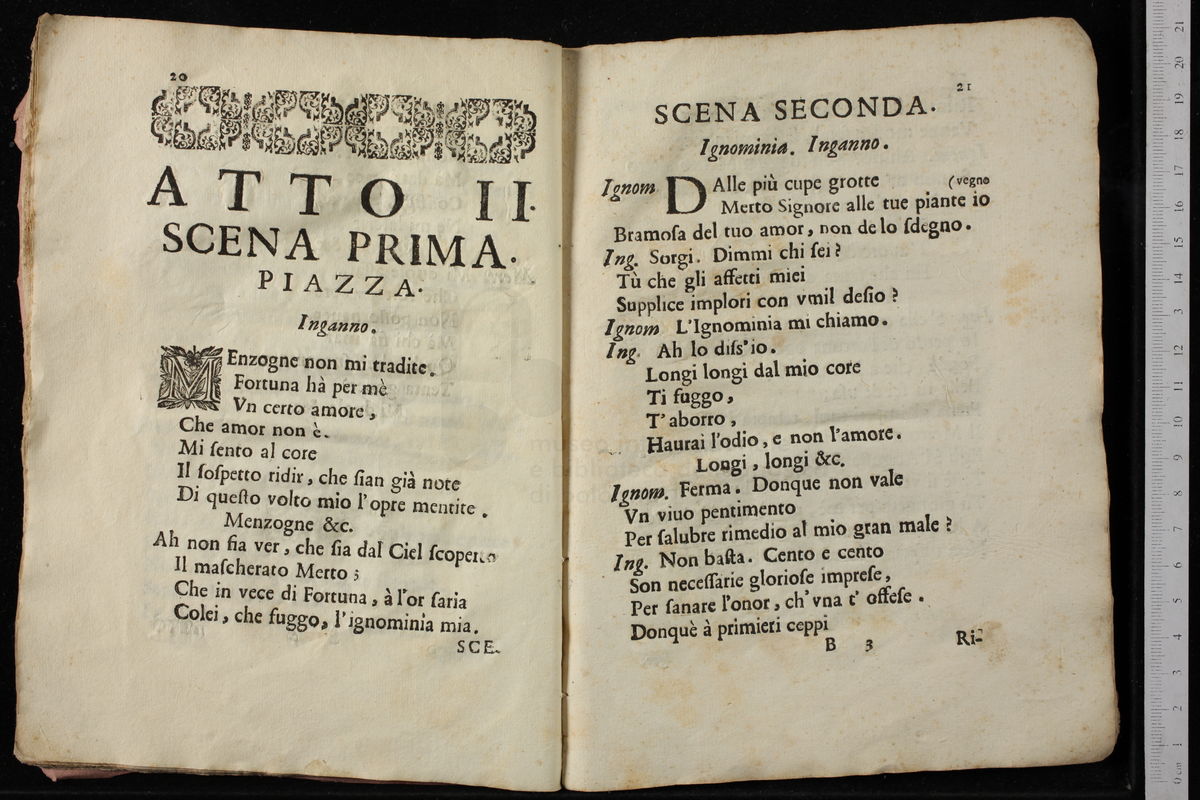 20
ATTO II.
SCENA PRIMA.
PIAZZA.
Inganno.
MEnzogne non mi tradite.
Fortuna hà per mè
Vn certo amore,
Che amor non è.
Mi ſento al core
Il ſoſpetto ridir, che ſian già note
Di queſto volto mio l'opre mentite.
Menzogne &c.
Ah non ſia ver, che ſia dal Ciel ſcoperto
Il maſcherato Merto;
Che in vece di Fortuna, à l'or ſaria
Colei, che fuggo, l'ignominia mia.
SCE-
21
SCENA SECONDA.
Ignominia. Inganno.
Ignom DAlle più cupe grotte (vegno
Merto Signore alle tue piante io
Bramoſa del tuo amor, non de lo ſdegno.
Ing. Sorgi. Dimmi chi ſei?
Tù che gli affetti miei
Supplice implori con vmil deſio?
Ignom L'Ignominia mi chiamo.
Ing. Ah lo diſs'io.
Longi longi dal mio core
Ti fuggo,
T'aborro,
Haurai l'odio, e non l'amore.
Longi, longi &c.
Ignom. Ferma. Donque non vale
Vn viuo pentimento
Per ſalubre rimedio al mio gran male?
Ing. Non baſta. Cento e cento
Son neceſſarie glorioſe impreſe,
Per ſanare l'onor, ch'vna t'offeſe.
Donquè à primieri ceppi
B 3 Ri-
museo
e biblioteca
0 cm 1 2 3 4 5 6 7 8 9 10 11 12 13 14 15 16 17 18 19 20 21